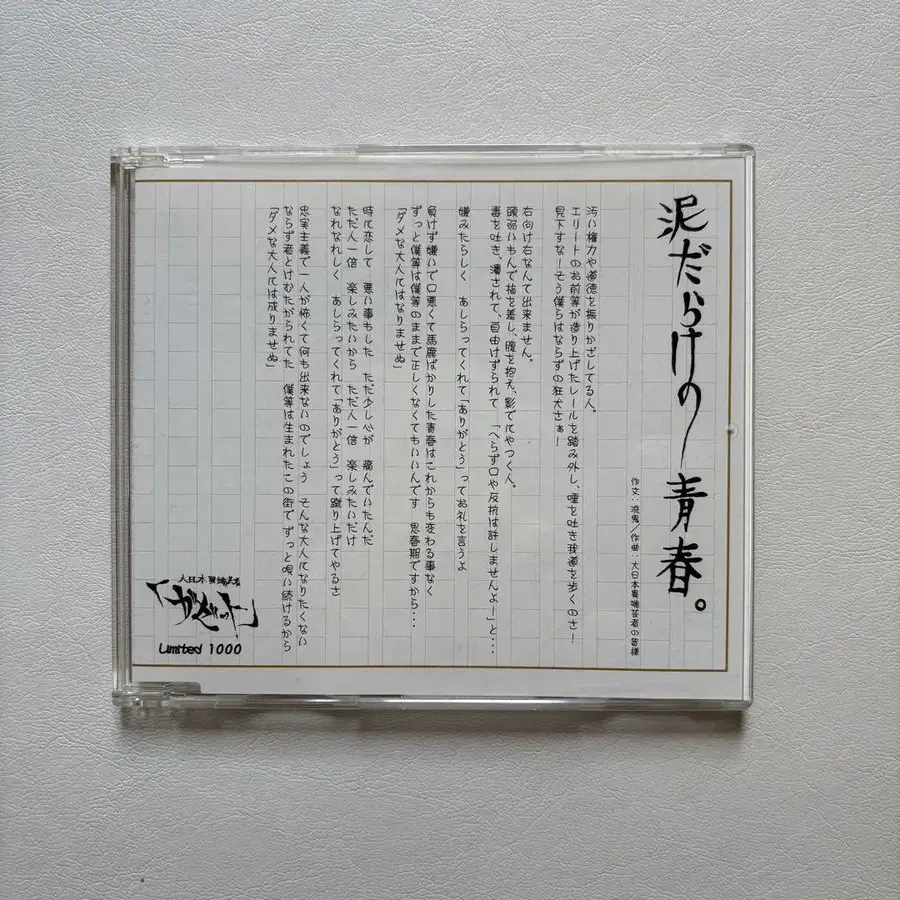 泥だらけの青春。
作文:流鬼/作曲:大日本異端芸者の皆様
汚い権力や道徳を振りかざしてる人。
エリートのお前等が造り上げたレールを踏み外し、唾を吐き我道を歩くのさ!
見下すな!そう僕らはならずの狂犬さぁ!
右向け右なんて出来ません。
頭弱いもんで指を差し、腹を抱え、影でてやつく人。
毒を吐き、潰されて、自由けずられて 「へらず口や反抗は許しませんよ!」と・・・
嫌みたらしく あしらってくれて「ありがとう」ってお礼を言うよ
負けず嫌いで口悪くて馬鹿ばかりした青春はこれからも変わる事なく
ずっと僕等は僕等のままで正しくなくてもいいんです 思春期ですから・・・
「ダメな大人にはなりませぬ」
時に恋して 悪い事もした ただ少し心が 痛んでいたんだ
ただ人一倍 楽しみたいから ただ人一倍 楽しみたいだけ
なれなれしく あしらってくれて「ありがとう」って蹴り上げてやるさ
忠実主義で一人が怖くて何も出来ないのでしょう そんな大人になりたくない
ならず者とけむたがられてた 僕等は生まれたこの街でずっと唄い続けるから
「ダメな大人には成りませぬ」
大日本異端芸者
「ガゼット」
Limited 1000